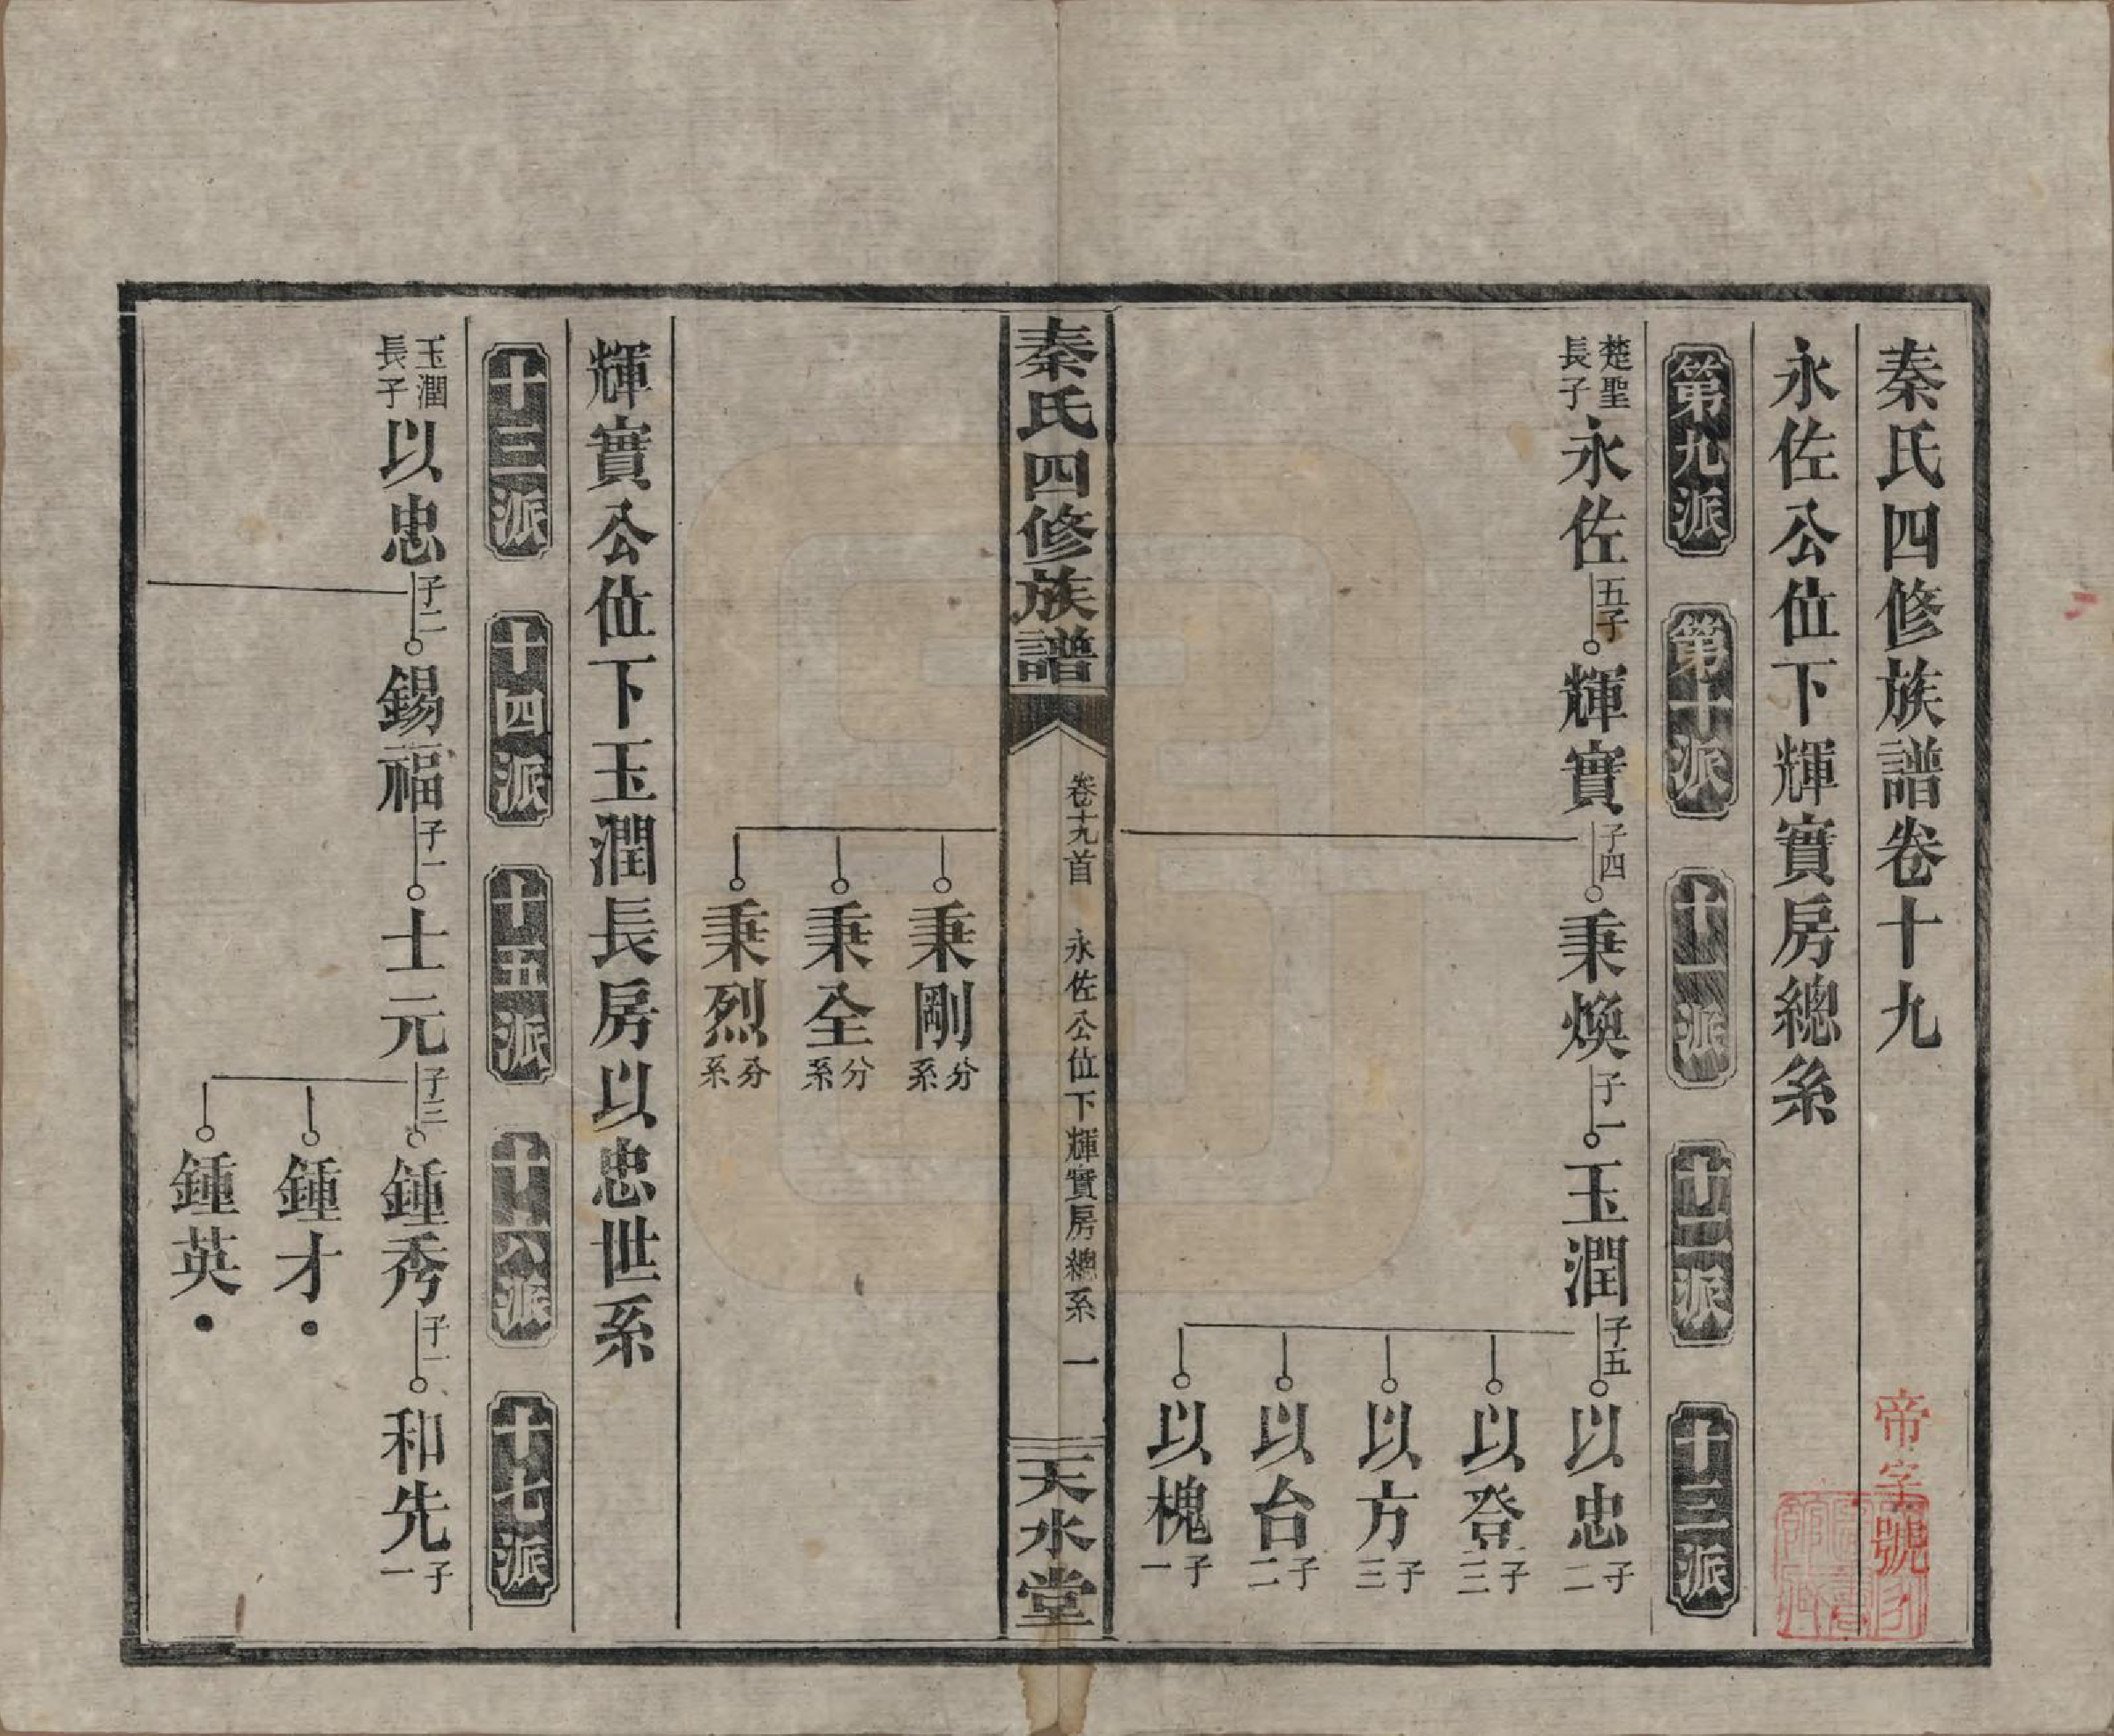 秦氏四修族譜卷十九
帝字號
永佐公位下輝實房總系
第九派 第十派 十一派 十二派 十三派
楚聖長子永佐 五子 輝實 子四 秉煥 子一 玉潤 子五 以忠 子二
以登 子三
以方 子三
以台 子二
以槐 子一
秦氏四修族譜 卷十九首 永佐公位下輝實房總系 一 天水堂
秉剛 分系
秉全 分系
秉烈 分系
輝實公位下玉潤長房以忠世系
十三派 十四派 十五派 十六派 十七派
玉潤長子以忠 子二 錫福 子一 士元 子三 鍾秀 子一 和先 子一
鍾才•
鍾英•